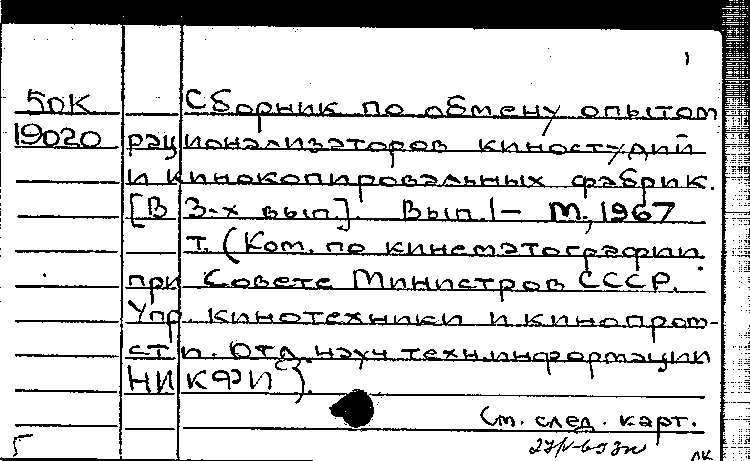 1
50К Сборник по обмену опытом
19020 рационализаторов киностудий
и кинокопировальных фабрик.
[В 3-х вып]. Вып.1- М., 1967
т. (Ком. по кинематографии
при Совете Министров СССР.
Упр. кинотехники и кинопром-
сти. Отд. науч техн.информации
НИКФИ).
См. след. карт.
5